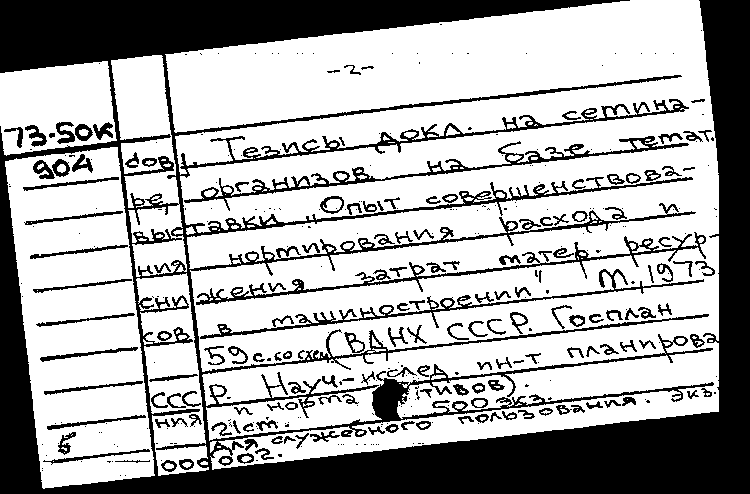 -2-
73-50к
904
дову]. Тезисы докл. на семина-
ре, организов. на базе темат.
выставки „Опыт совершенствова-
ния нормирования расхода и
сни жения затрат матер. ресур-
сов в машиностроении". М., 1973
59 с. со схем. (ВДНХ СССР. Госплан
СССР. Науч.-исслед. ин-т планирова
ния и норма тивов).
21см. 500 экз.
Для служебного пользования. Экз.
000002.
5